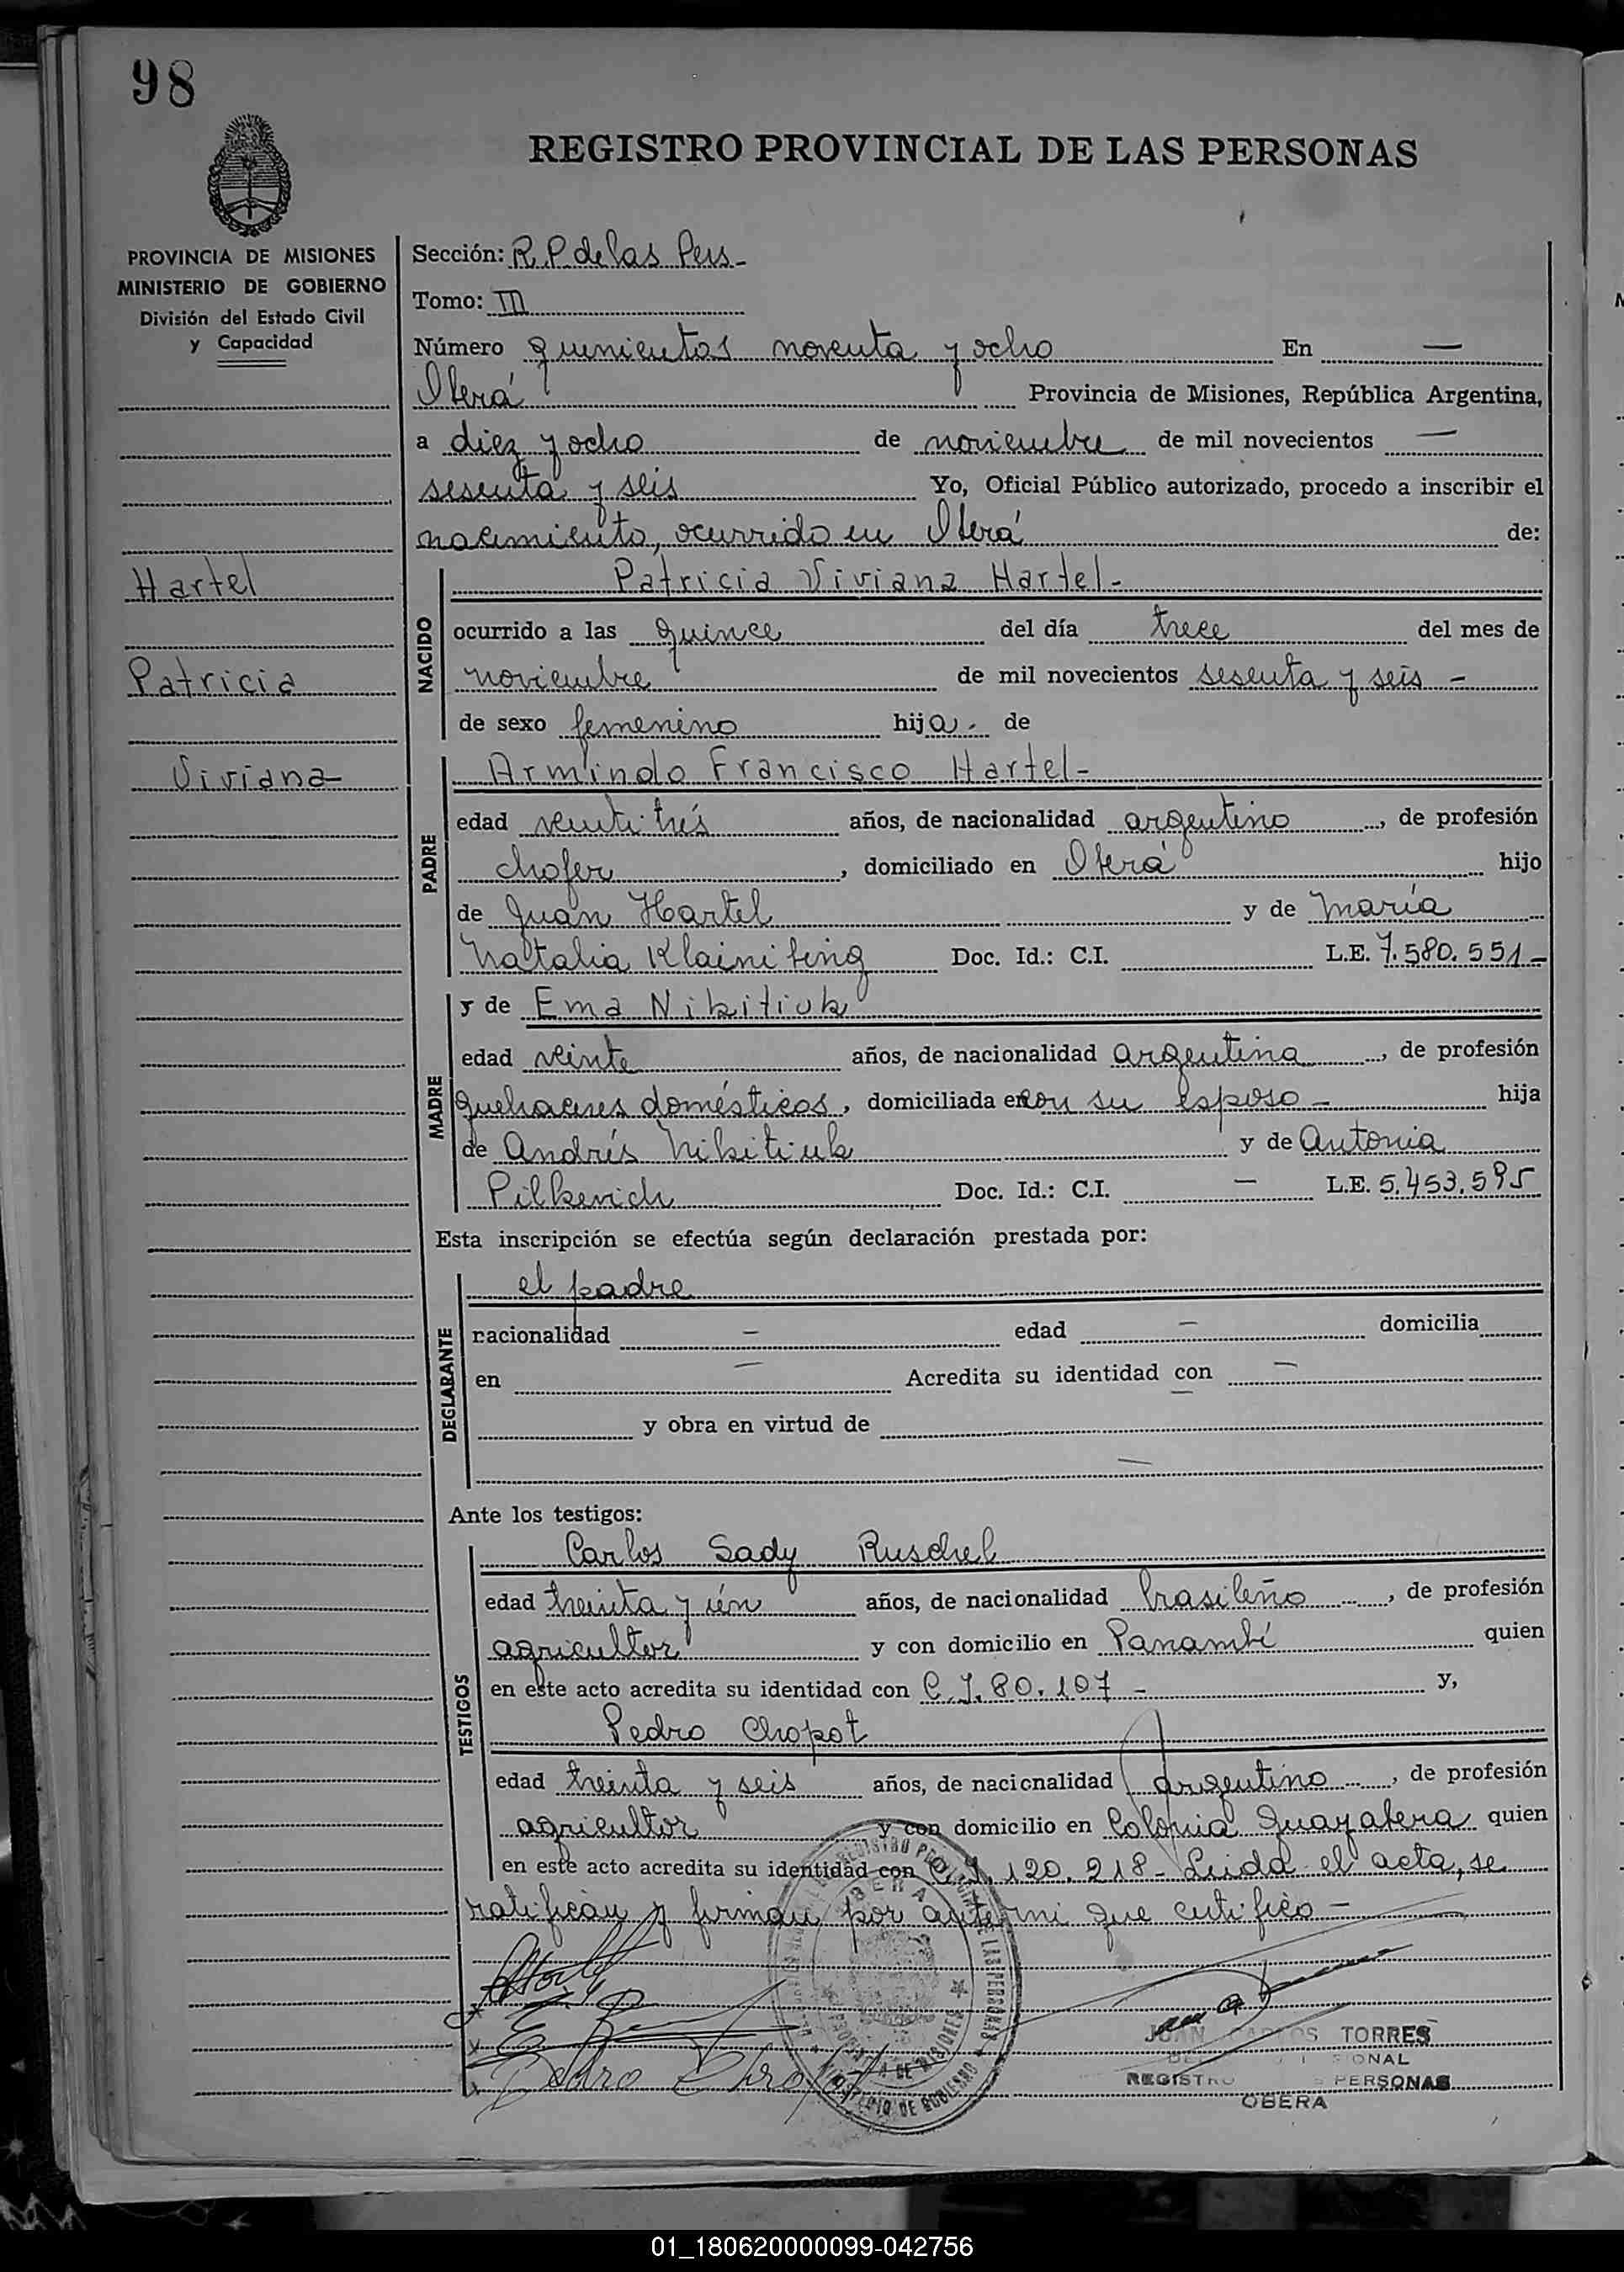 98
REGISTRO PROVINCIAL DE LAS PERSONAS
PROVINCIA DE MISIONES
MINISTERIO DE GOBIERNO
División del Estado Civil
y Capacidad
Hartel
Patricia
Viviana
Sección: R.P. de las Pers-
Tomo: III
Número quinientos noventa y ocho En —
Oberá Provincia de Misiones, República Argentina,
a diez y ocho de noviembre de mil novecientos —
sesenta y seis Yo, Oficial Público autorizado, procedo a inscribir el
nacimiento, ocurrido en Oberá de:
NACIDO
Patricia Viviana Hartel-
ocurrido a las quince del día trece del mes de
noviembre de mil novecientos sesenta y seis -
de sexo femenino hija. de
PADRE
Armindo Francisco Hartel-
edad veintitrés años, de nacionalidad argentino, de profesión
chofer, domiciliado en Oberá hijo
de Juan Hartel y de María
Natalia Klaini Doc. Id.: C.I. L.E. 7.580.551-
MADRE
y de Ema Nikitiuk
edad veinte años, de nacionalidad argentina, de profesión
quehaceres domésticos, domiciliada en con su esposo - hija
de Andrés Nikitiuk y de Antonia
Pilkevich Doc. Id.: C.I. — L.E. 5.453.595
Esta inscripción se efectúa según declaración prestada por:
DECLARANTE
el padre
nacionalidad — edad — domicilia
en — Acredita su identidad con —
y obra en virtud de —
—
Ante los testigos:
TESTIGOS
Carlos Sady Ruschel
edad treinta y ún años, de nacionalidad brasileño, de profesión
agricultor y con domicilio en Panambí quien
en este acto acredita su identidad con C.I. 80.107 - y,
Pedro Chopot
edad treinta y seis años, de nacionalidad argentino, de profesión
agricultor y con domicilio en Colonia Guayabera quien
en este acto acredita su identidad con C.I. 120.218- Leida el acta, se
ratifican y firman por ante mi que certifico -
Pedro
JUAN CARLOS TORRES
REGISTRO PERSONAS
OBERA
MINISTERIO DE GOBIERNO
PROVINCIA DE MISIONES
01_180620000099-042756